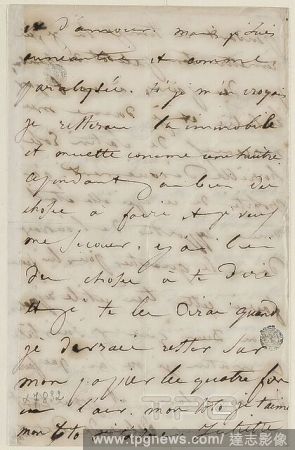 et d'amour mais je suis
anéantie et comme
paralysée. Si je m'en croyais
je resterais là immobile
et muette comme une huître
cependant j'ai bien des
choses à faire et je veux
me secouer, j'ai bien
des choses à te dire
et je te les dirai quand
je devrais rester sur
mon papier les quatre fers
en l'air, mon toto je t'aime
mon toto
17892
TPG
www.tpgnews.com / 達志影像